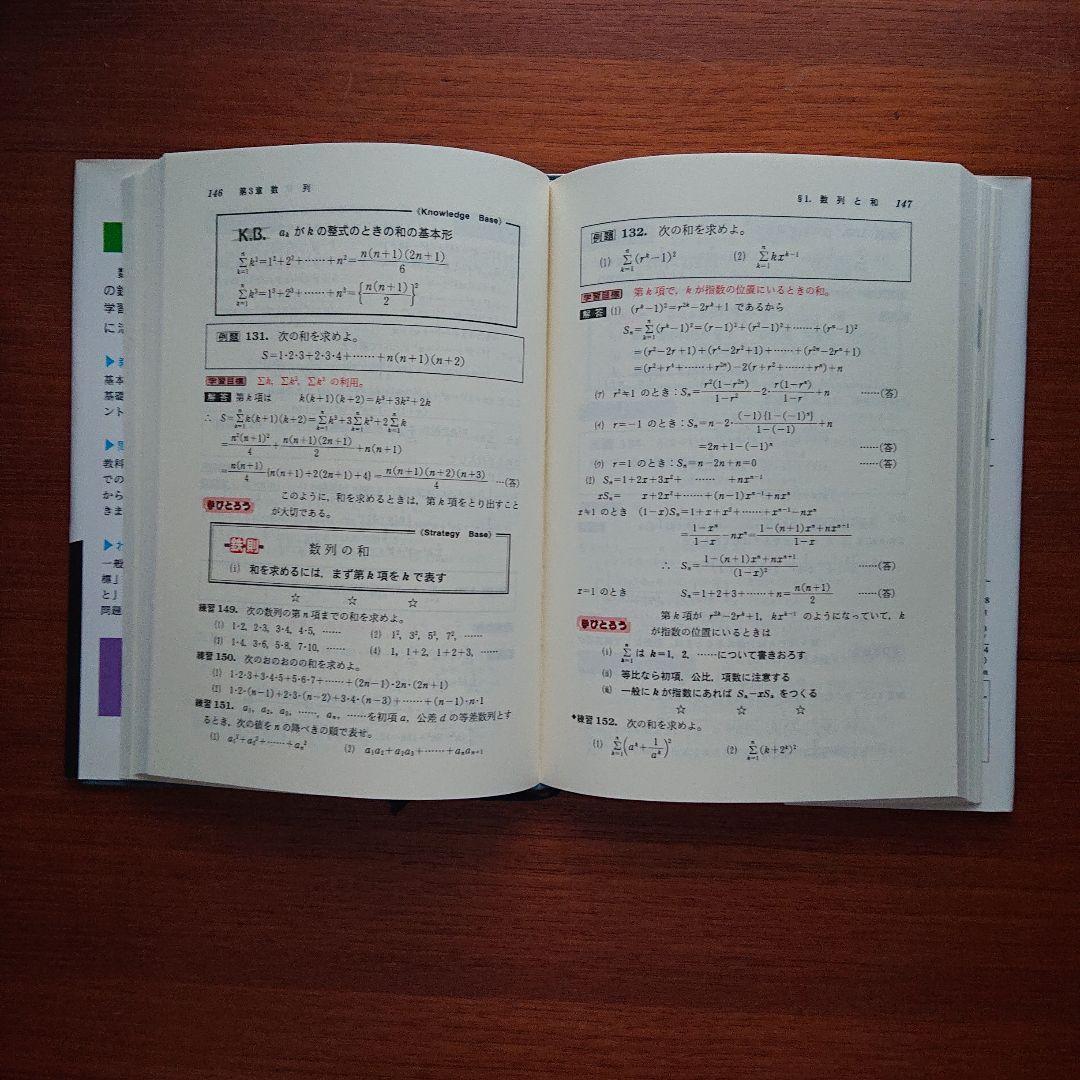 数
の
学習
に
基本
基礎
ント
教科
での
から
きま
一般
標」
と」
問題
146 第3章 数 列
《Knowledge Base》
K.B. aₖ が k の整式のときの和の基本形
∑_{k=1}^{n} k²=1²+2²+……+n²=n(n+1)(2n+1)/6
∑_{k=1}^{n} k³=1³+2³+……+n³={n(n+1)/2}²
例題 131. 次の和を求めよ。
S=1·2·3+2·3·4+……+n(n+1)(n+2)
学習目標 ∑k, ∑k², ∑k³ の利用。
解答 第 k 項は k(k+1)(k+2)=k³+3k²+2k
∴ S=∑_{k=1}^{n} k(k+1)(k+2)=∑_{k=1}^{n} k³+3∑_{k=1}^{n} k²+2∑_{k=1}^{n} k
=n²(n+1)²/4+n(n+1)(2n+1)/2+n(n+1)
=n(n+1)/4{n(n+1)+2(2n+1)+4}=n(n+1)(n+2)(n+3)/4 …(答)
拳ひとろう このように，和を求めるときは，第 k 項をとり出すこと
が大切である。
《Strategy Base》
鉄則 数列の和
(i) 和を求めるには，まず第 k 項を k で表す
☆ ☆ ☆
練習 149. 次の数列の第 n 項までの和を求めよ。
(1) 1·2, 2·3, 3·4, 4·5, …… (2) 1², 3², 5², 7², ……
(3) 1·4, 3·6, 5·8, 7·10, …… (4) 1, 1+2, 1+2+3, ……
練習 150. 次のおのおのの和を求めよ。
(1) 1·2·3+3·4·5+5·6·7+……+(2n−1)·2n·(2n+1)
(2) 1·2·(n−1)+2·3·(n−2)+3·4·(n−3)+……+(n−1)·n·1
練習 151. a₁, a₂, a₃, ……, aₙ, ……を初項 a，公差 d の等差数列とす
るとき，次の値を n の降べきの順で表せ。
(1) a₁²+a₂²+……+aₙ² (2) a₁a₂+a₂a₃+……+aₙaₙ₊₁
§1. 数列と和 147
例題 132. 次の和を求めよ。
(1) ∑_{k=1}^{n} (rᵏ−1)² (2) ∑_{k=1}^{n} kxᵏ⁻¹
学習目標 第 k 項で，k が指数の位置にいるときの和。
解答 (1) (rᵏ−1)²=r²ᵏ−2rᵏ+1 であるから
Sₙ=∑_{k=1}^{n} (rᵏ−1)²=(r−1)²+(r²−1)²+……+(rⁿ−1)²
=(r²−2r+1)+(r⁴−2r²+1)+……+(r²ⁿ−2rⁿ+1)
=(r²+r⁴+……+r²ⁿ)−2(r+r²+……+rⁿ)+n
(ア) r²≒1 のとき：Sₙ=r²(1−r²ⁿ)/1−r²−2·r(1−rⁿ)/1−r+n ……(答)
(イ) r=−1 のとき：Sₙ=n−2·(−1){1−(−1)ⁿ}/1−(−1)+n
=2n+1−(−1)ⁿ ……(答)
(ウ) r=1 のとき：Sₙ=n−2n+n=0 ……(答)
(2) Sₙ=1+2x+3x²+ …… +nxⁿ⁻¹
xSₙ= x+2x²+……+(n−1)xⁿ⁻¹+nxⁿ
x≒1 のとき (1−x)Sₙ=1+x+x²+……+xⁿ⁻¹−nxⁿ
=1−xⁿ/1−x−nxⁿ=1−(n+1)xⁿ+nxⁿ⁺¹/1−x
∴ Sₙ=1−(n+1)xⁿ+nxⁿ⁺¹/(1−x)² ……(答)
x=1 のとき Sₙ=1+2+3+……+n=n(n+1)/2 ……(答)
拳ひとろう 第 k 項が r²ᵏ−2rᵏ+1, kxᵏ⁻¹ のようになっていて，k
が指数の位置にいるときは
(i) ∑_{k=1}^{n} は k=1, 2, ……について書きおろす
(ii) 等比なら初項，公比，項数に注意する
(iii) 一般に k が指数にあれば Sₙ−xSₙ をつくる
☆ ☆ ☆
◆練習 152. 次の和を求めよ。
(1) ∑_{k=1}^{n} (aᵏ+1/aᵏ)² (2) ∑_{k=1}^{n} (k+2ᵏ)²